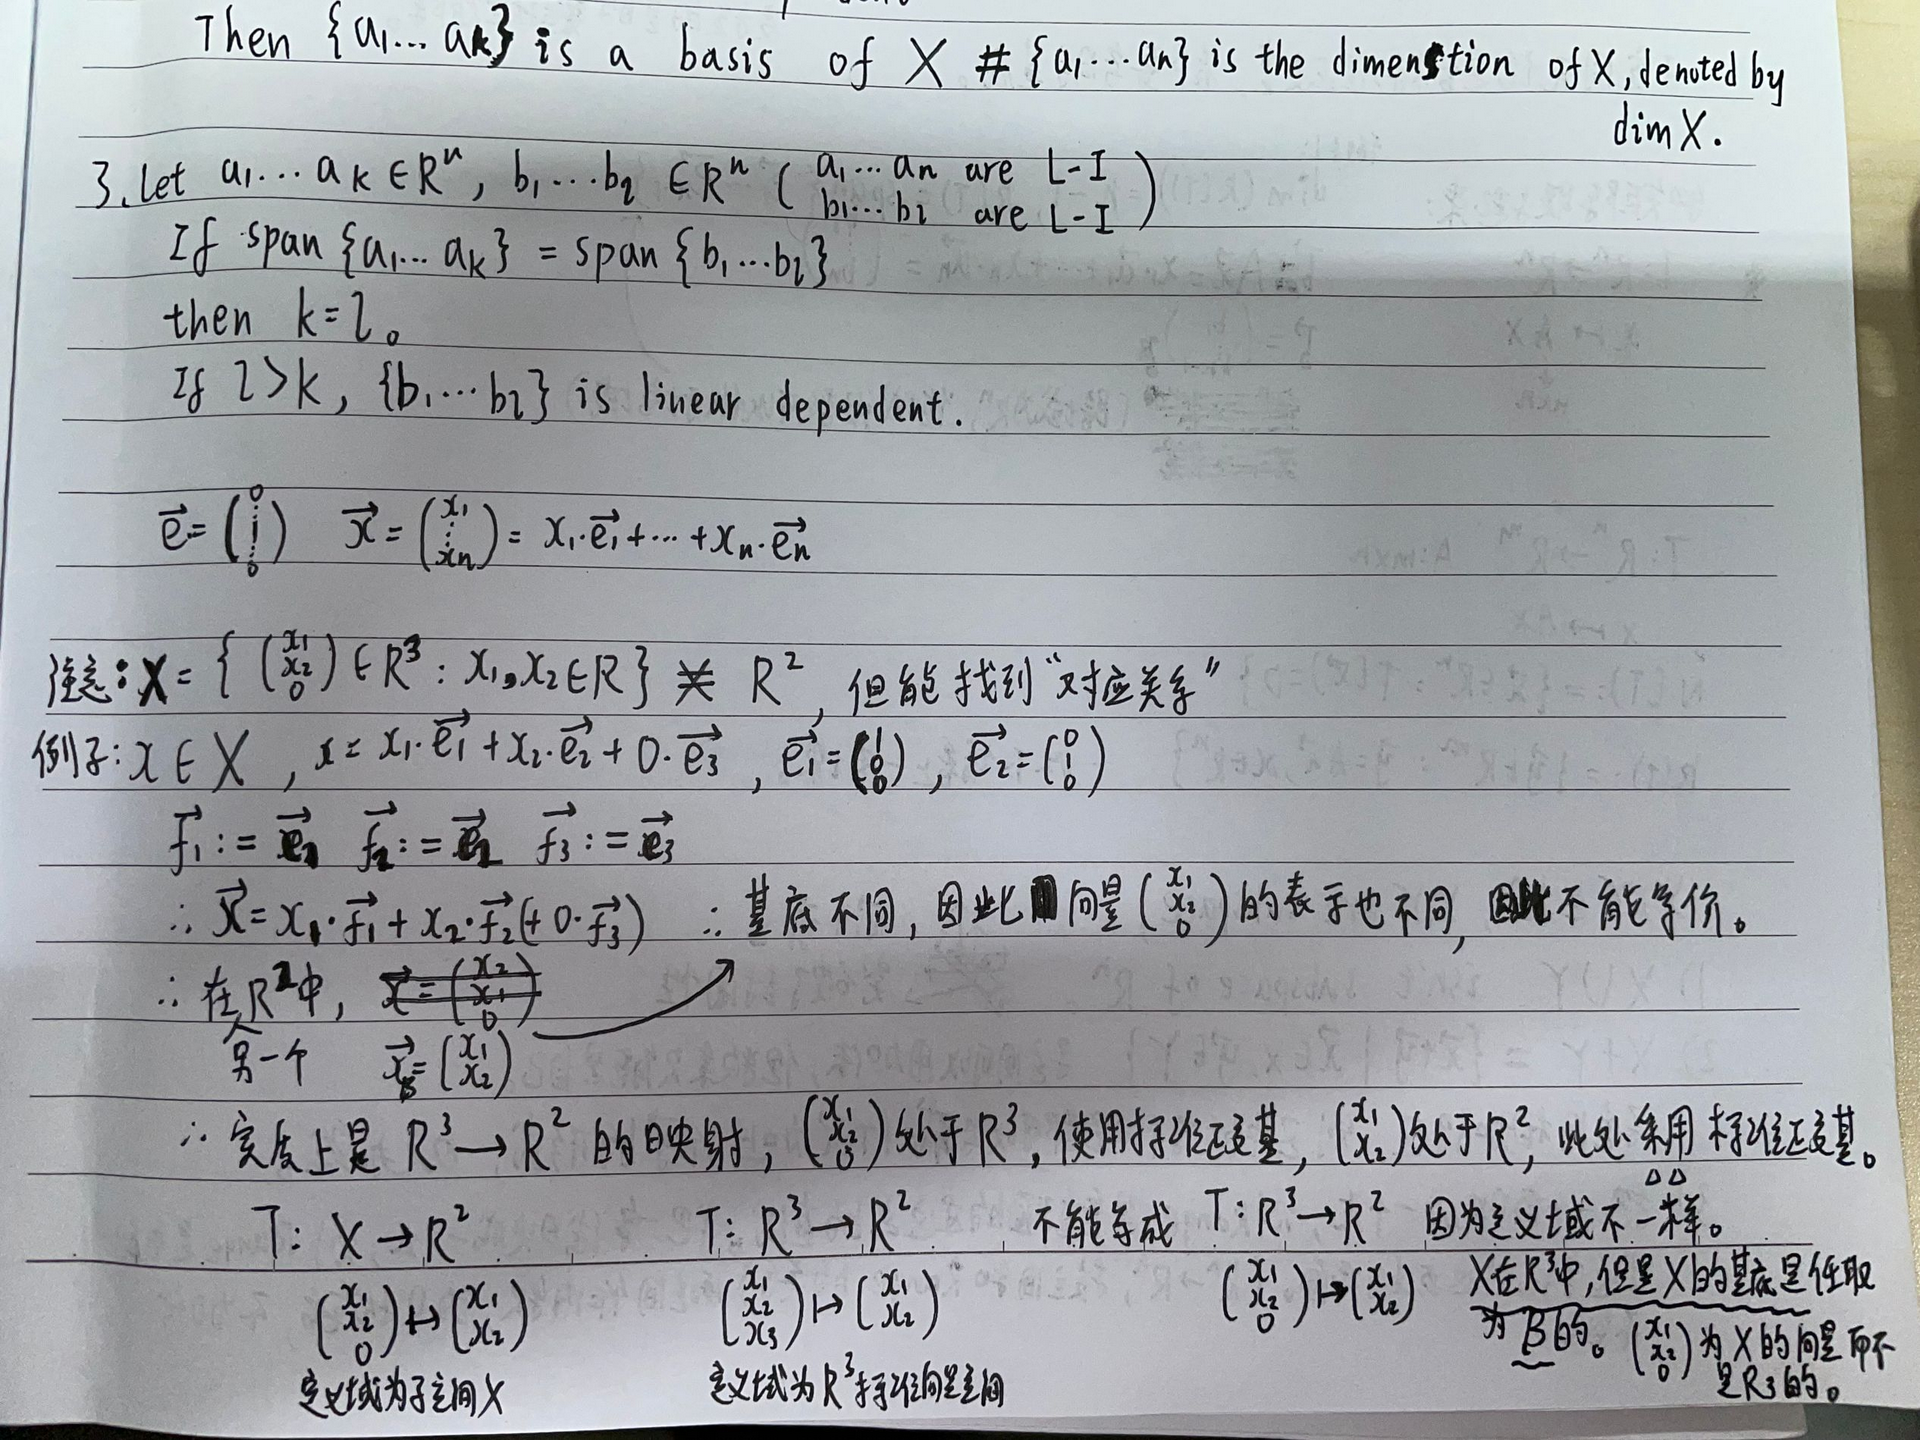 Then {a₁... aₖ} is a basis of X # {a₁...aₙ} is the dimenstion of X, denoted by
dim X.
3. Let a₁...aₖ ∈ Rⁿ, b₁...bₗ ∈ Rⁿ ( a₁...aₙ are L-I
b₁...bₗ are L-I )
If span {a₁... aₖ} = span {b₁...bₗ}
then k=l。
If l>k, {b₁...bₗ} is linear dependent.
e⃗ = (0 ⋮ 1 ⋮ 0) x⃗ = (x₁ ⋮ xₙ) = x₁·e⃗₁+⋯+xₙ·e⃗ₙ
注意: X = { (x₁ x₂ 0) ∈ R³ : x₁,x₂∈R } ≠ R², 但能找到“对应关系”
例子: x ∈ X , x = x₁·e⃗₁ + x₂·e⃗₂ + 0·e⃗₃ , e⃗₁=(1 0 0) , e⃗₂=(0 1 0)
f⃗₁ := e⃗₂ f⃗₂ := e⃗₁ f⃗₃ := e⃗₃
∴ x⃗ = x₁·f⃗₁ + x₂·f⃗₂(+0·f⃗₃) ∴ 基底不同, 因此向量 (x₁ x₂ 0) 的表示也不同, 因此不能等价。
∴ 在R²中, x⃗ = (x₂ x₁ 0)
另一个 x⃗_B = (x₁ x₂)
∴ 实质上是 R³ → R² 的映射, (x₁ x₂ 0) 处于R³, 使用标准正交基, (x₁ x₂) 处于R², 此处采用标准正交基。
T: X → R² T: R³ → R² 不能写成 T: R³ → R² 因为定义域不一样。
(x₁ x₂ 0) ↦ (x₁ x₂) (x₁ x₂ x₃) ↦ (x₁ x₂) (x₁ x₂ 0) ↦ (x₁ x₂) X在R³中, 但是X的基底是任取
为B的。(x₁ x₂ 0) 为X的向量而不
是R³的。
定义域为子空间X 定义域为R³标准向量空间